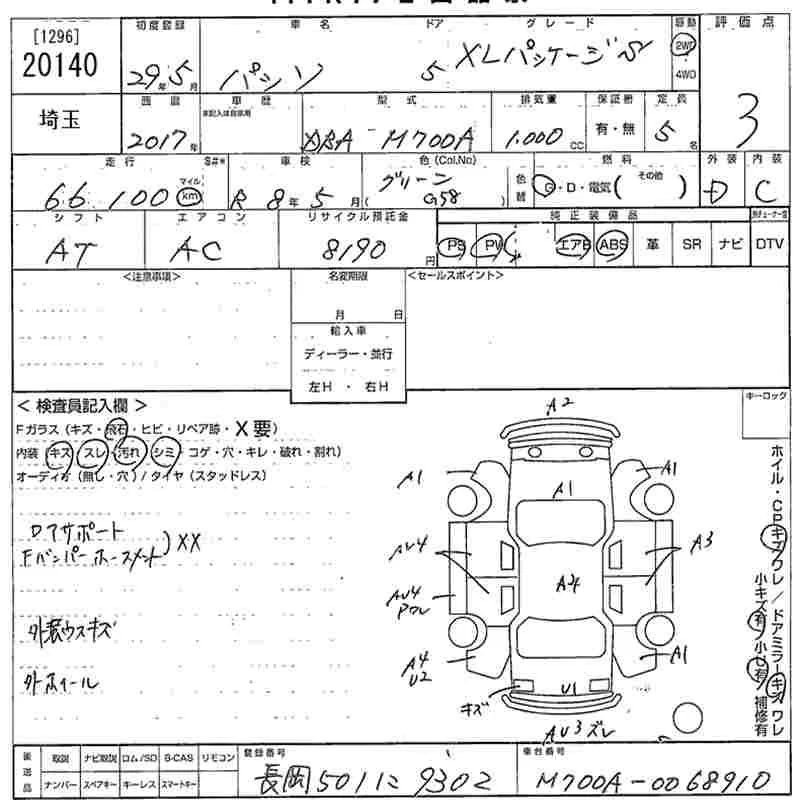 [1296]
20140
初度登録 車名 ドア グレード 駆動 評価点
29年5月 パッソ 5 XLパッケージS 2WD
4WD
3
埼玉
西暦 車歴 型式 排気量 保証書 定員
未記入は自家用
2017年 DBA M700A 1.000CC 有・無 5名
走行 S#* 車検 色(Col,No) 燃料 外装 内装
マイル
66,100 km R8年5月 グリーン (G58) 色替 G・D・電気( その他 ) D C
シフト エアコン リサイクル預託金 純正装備品
AT AC 8190円 PS PW エアB ABS 革 SR ナビ DTV
<注意事項> 名変期限 <セールスポイント>
月 日
輸入車
ディーラー・並行
左H ・ 右H
キーロック
< 検査員記入欄 >
Fガラス(キズ・飛石・ヒビ・リペア跡・X要)
内装(キズ・スレ・汚れ・シミ・コゲ・穴・キレ・破れ・割れ)
オーディオ(無し・穴)/タイヤ(スタッドレス)
A2
A1 A1
A1
Dアサポート
Fバンパーホースメント )XX
AU4 A3
A4
AU4
Pワレ
外装ウスキズ
A4
U2
A1
外ホイール
キズ U1
AU3ズレ
ホイル・CPキズワレ/ドアミラーキズワレ
小キズ有 小U有 補修有
後送品 取説 ナビ取説 ロム/SD B-CAS リモコン
ナンバー スペアキー キーレス スマートキー
登録番号
長岡501に9302
車台番号
M700A-0068910